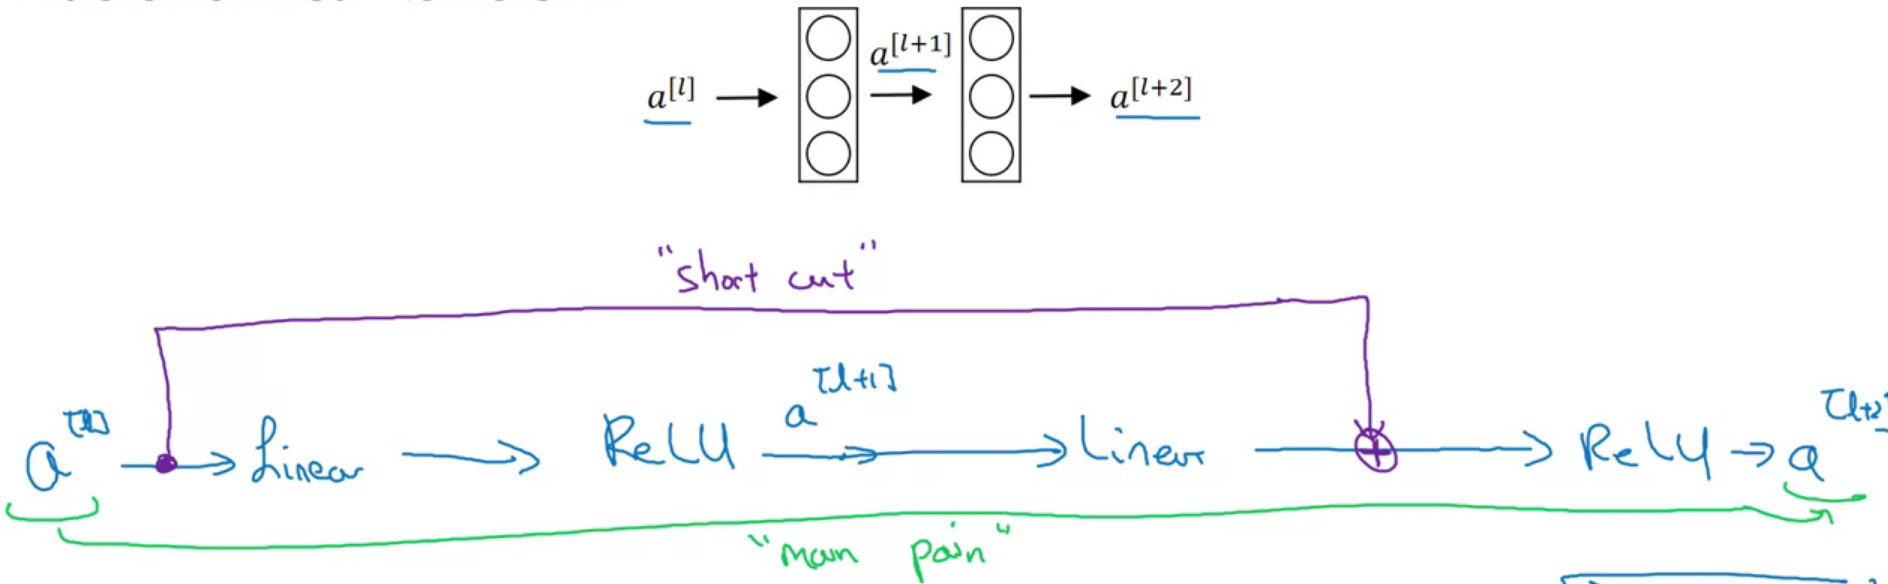 a^[l+1]
a^[l] → → → a^[l+2]
"short cut"
a^[l] → Linear → ReLU a^[l+1] → Linear → ReLU → a^[l+2]
"main pain"